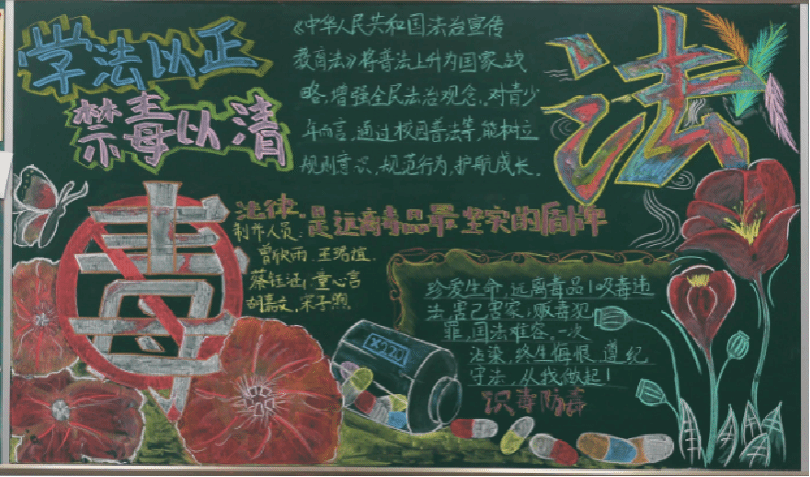 学法以正
禁毒以清
《中华人民共和国法治宣传
教育法》将普法上升为国家战
略,增强全民法治观念。对青少
年而言,通过校园普法等,能树立
规则意识,规范行为,护航成长。
法
法律,是远离毒品最坚实的盾牌
制作人员:
曾欣雨 王珞谊
童心言
毒
珍爱生命,远离毒品!吸毒违
法,害己害家,贩毒犯
罪,国法难容,一次
沾染,终生悔恨,遵纪
守法,从我做起!
识毒防毒